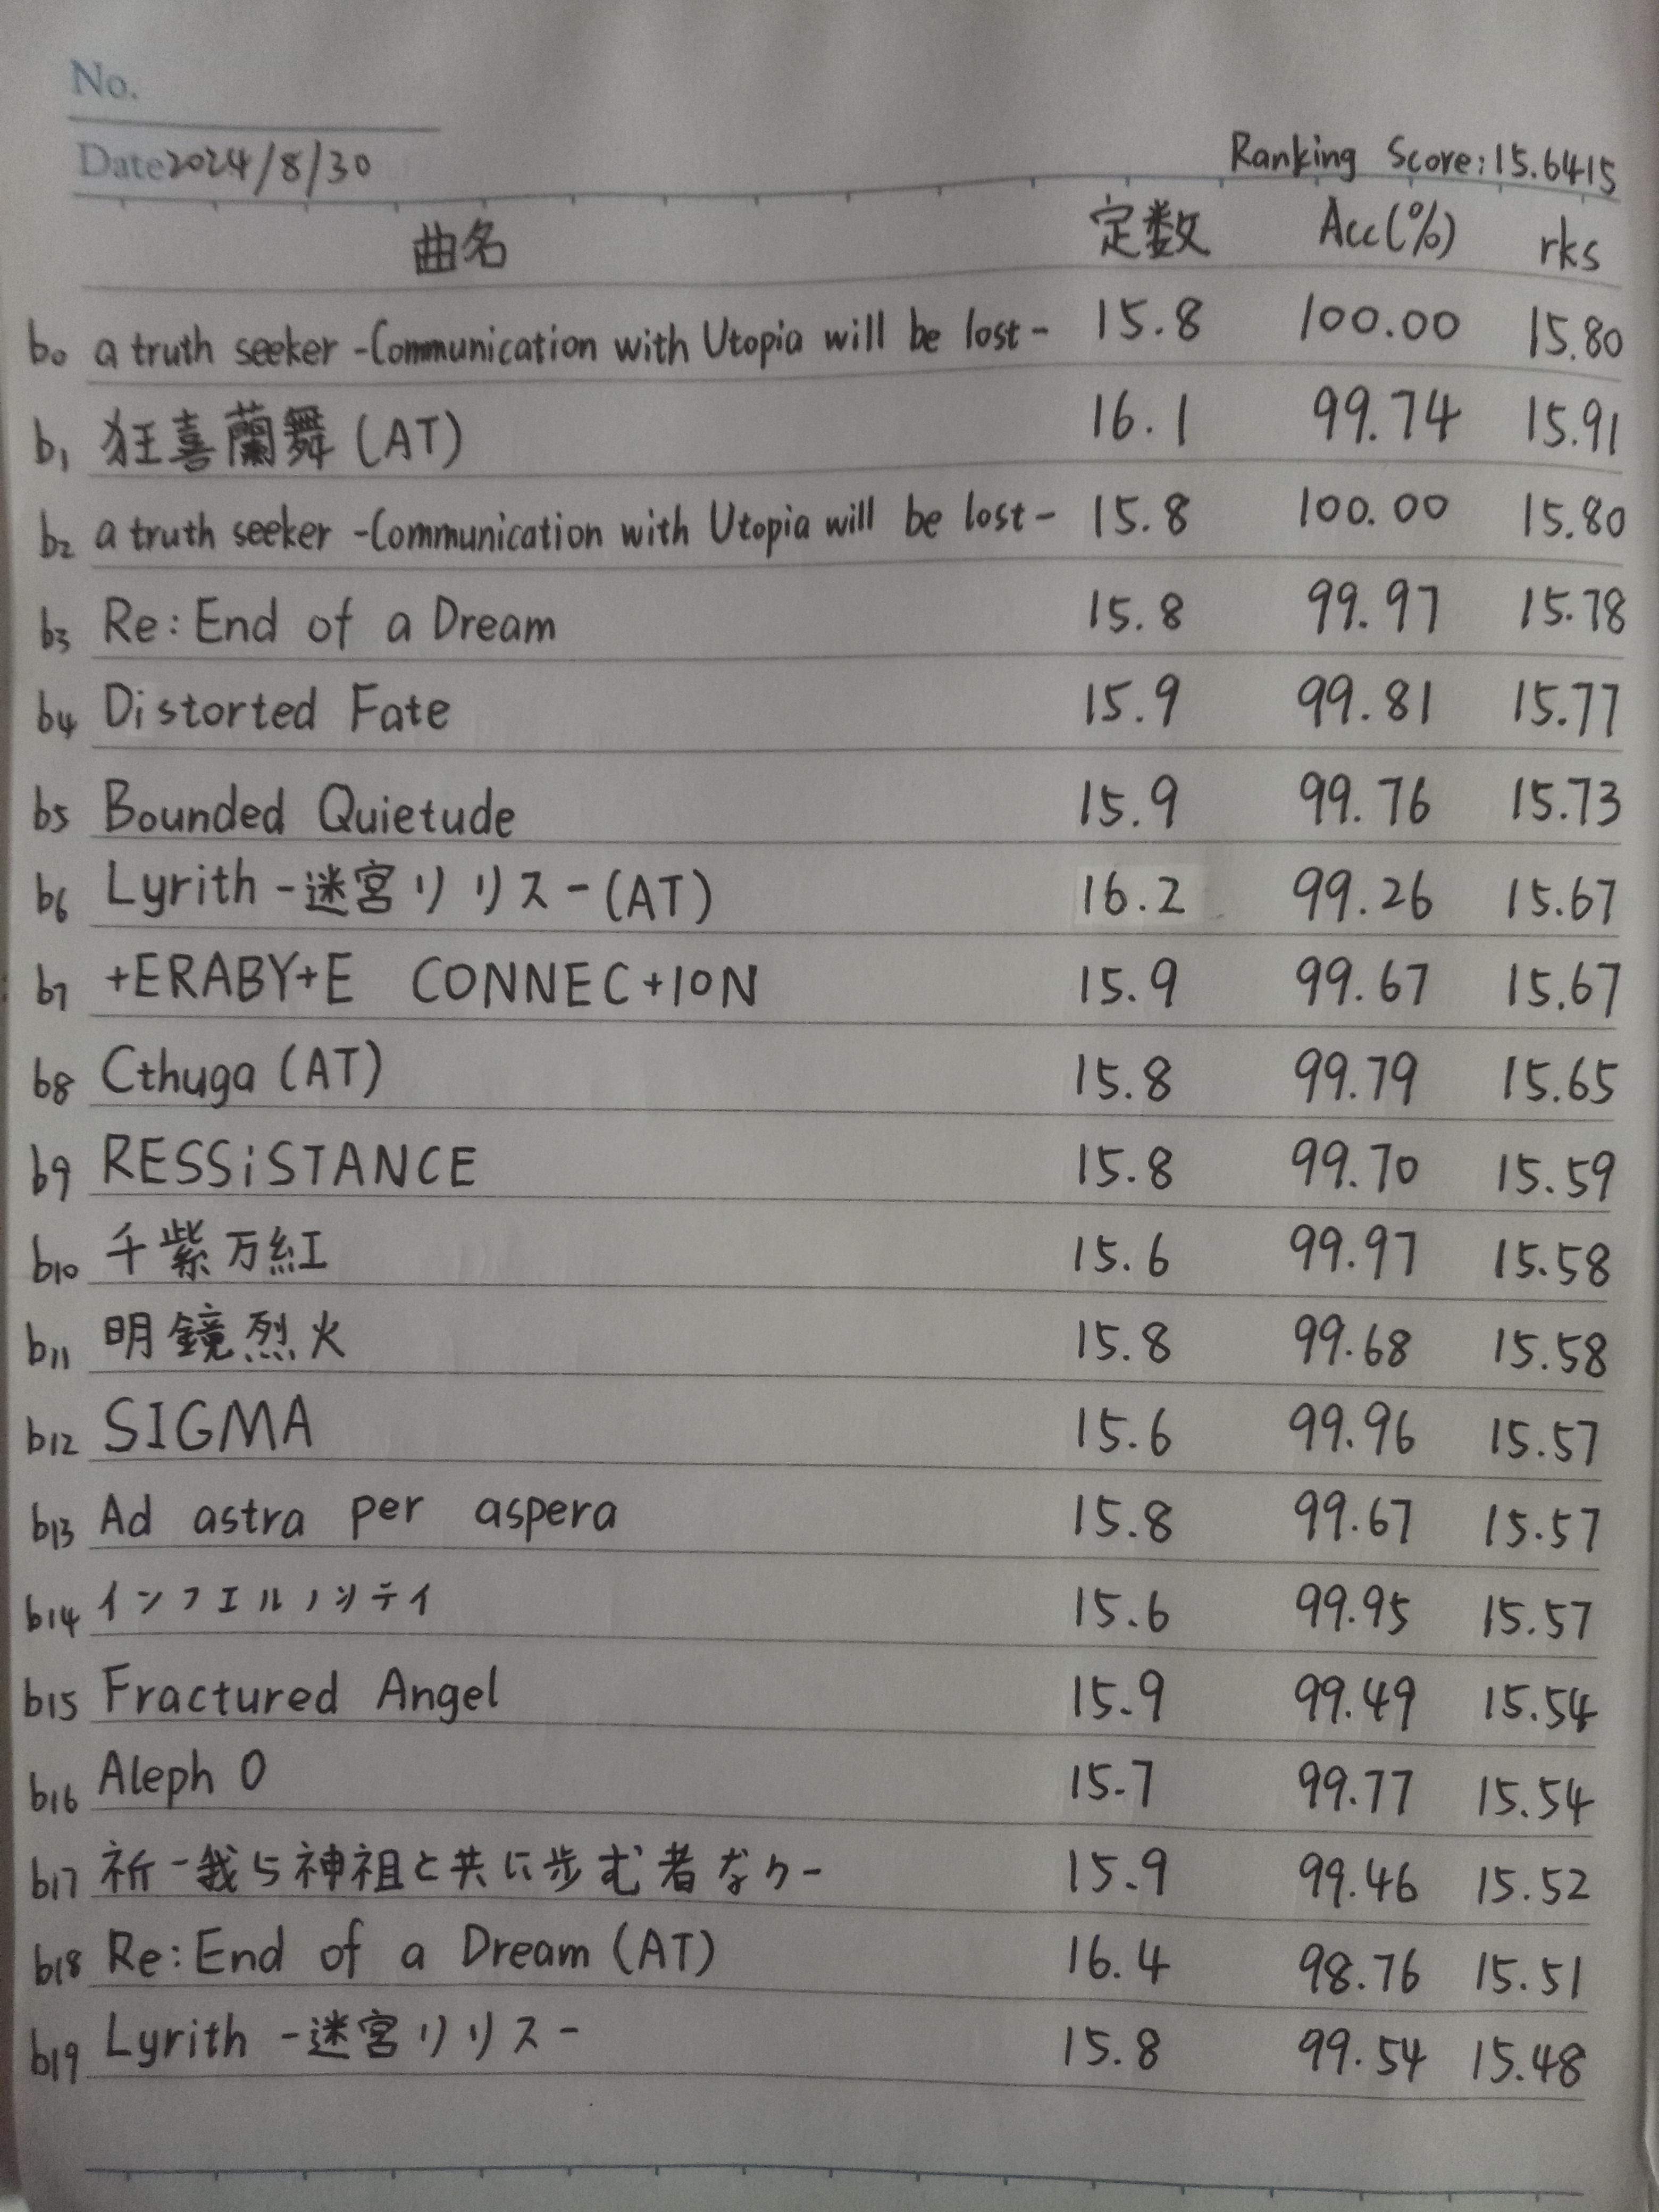 No.
Date 2024/8/30
Ranking Score:15.6415
曲名 定数 Acc(%) rks
b0 a truth seeker -Communication with Utopia will be lost- 15.8 100.00 15.80
b1 狂喜蘭舞(AT) 16.1 99.74 15.91
b2 a truth seeker -Communication with Utopia will be lost- 15.8 100.00 15.80
b3 Re:End of a Dream 15.8 99.97 15.78
b4 Distorted Fate 15.9 99.81 15.77
b5 Bounded Quietude 15.9 99.76 15.73
b6 Lyrith -迷宮リリス-(AT) 16.2 99.26 15.67
b7 +ERABY+E CONNEC+ION 15.9 99.67 15.67
b8 Cthuga(AT) 15.8 99.79 15.65
b9 RESSiSTANCE 15.8 99.70 15.59
b10 千紫万紅 15.6 99.97 15.58
b11 明鏡烈火 15.8 99.68 15.58
b12 SIGMA 15.6 99.96 15.57
b13 Ad astra per aspera 15.8 99.67 15.57
b14 インフェルノシティ 15.6 99.95 15.57
b15 Fractured Angel 15.9 99.49 15.54
b16 Aleph 0 15.7 99.77 15.54
b17 祈 -我ら神祖と共に歩む者なり- 15.9 99.46 15.52
b18 Re:End of a Dream(AT) 16.4 98.76 15.51
b19 Lyrith -迷宮リリス- 15.8 99.54 15.48